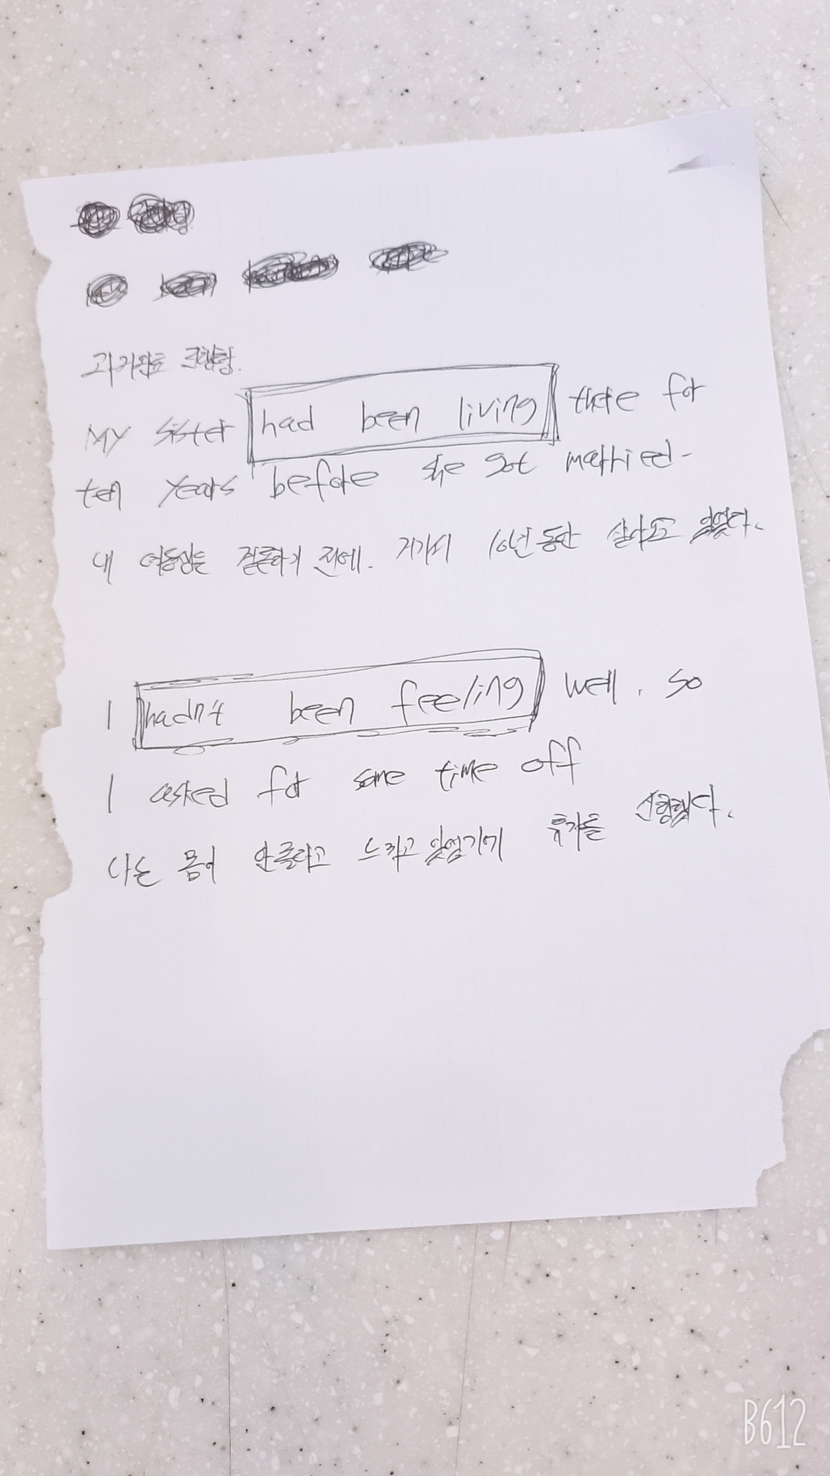 과거완료 진행형.
MY sister had been living there for
ten years before she got married.
내 여동생은 결혼하기 전에. 거기서 10년 동안 살아오고 있었다.
I hadn't been feeling well. so
I asked for some time off
나는 몸이 안좋다고 느끼고 있었기에 휴가를 신청했다.
B612